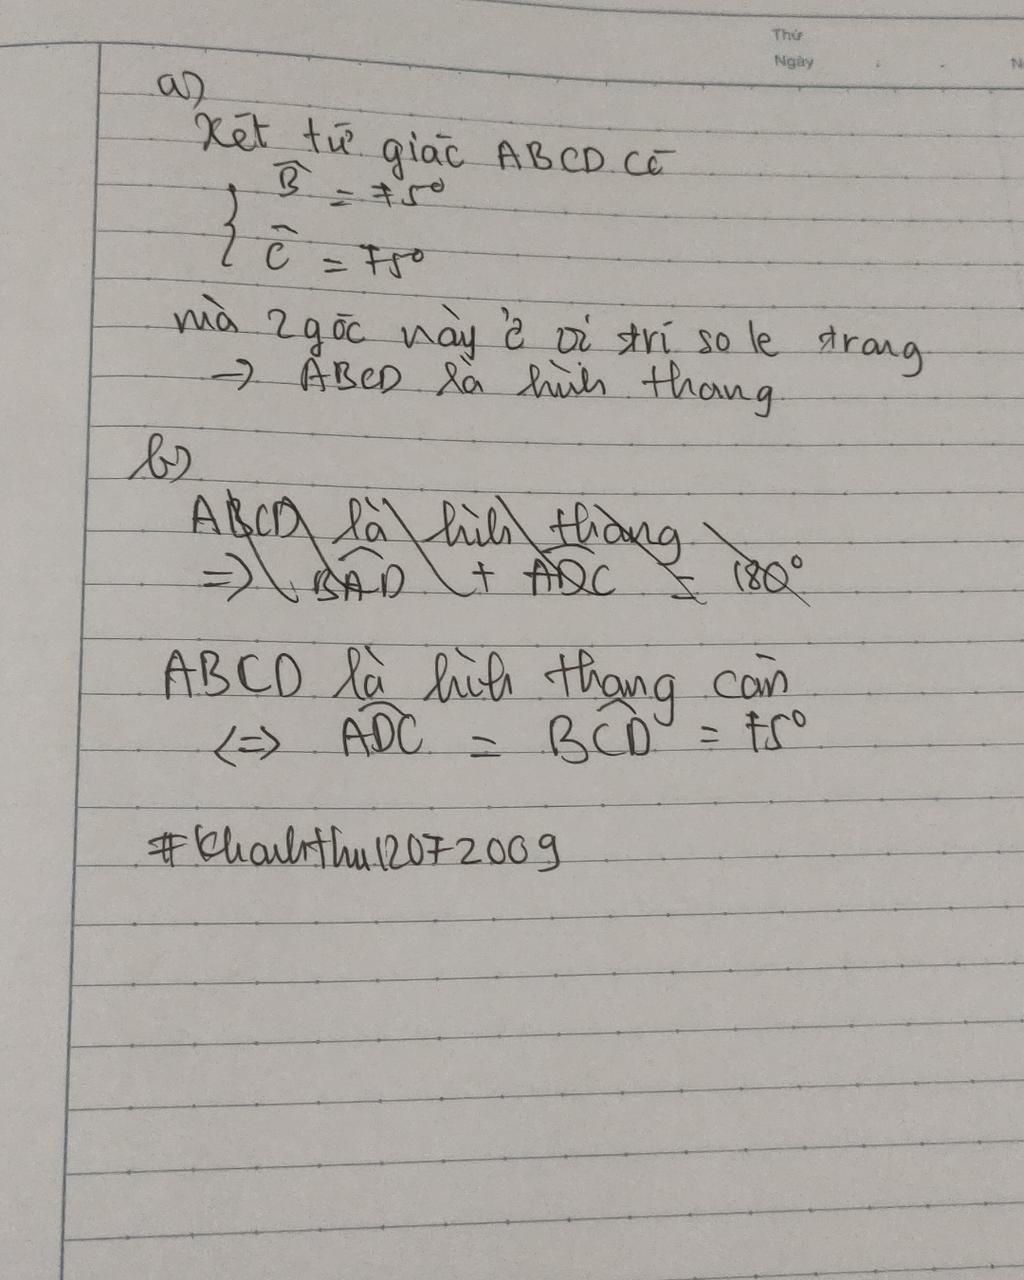 Thứ
Ngày
a)
Xét tứ giác ABCD có
B̂ = 75°
Ĉ = 75°
mà 2 góc này ở vị trí so le trong
→ ABCD là hình thang
b)
ABCD là hình thang
=> BAD + ADC = 180°
ABCD là hình thang cân
<=> ADC = BCD = 75°
#Khanhthu12072009